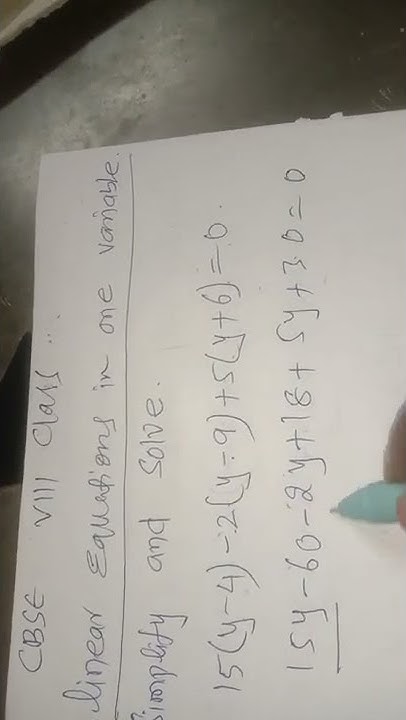 CBSE VIII Class...
linear Equations in one variable.
Simplify and solve.
15(y-4)-2(y-9)+5(y+6)=0.
15y-60-2y+18+5y+30=0